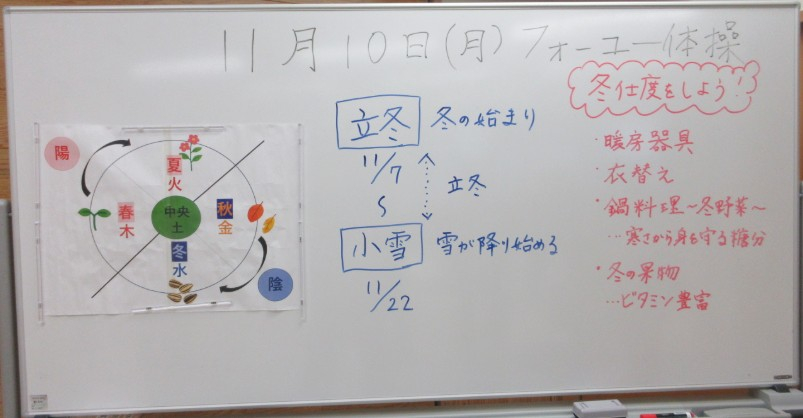 11月10日(月) フォーユー体操
陽
夏
火
春
木
中央
土
秋
金
冬
水
陰
立冬 冬の始まり
11/7
立冬
小雪 雪が降り始める
11/22
冬仕度をしよう!
・暖房器具
・衣替え
・鍋料理〜冬野菜〜
…寒さから身を守る糖分
・冬の果物
…ビタミン豊富